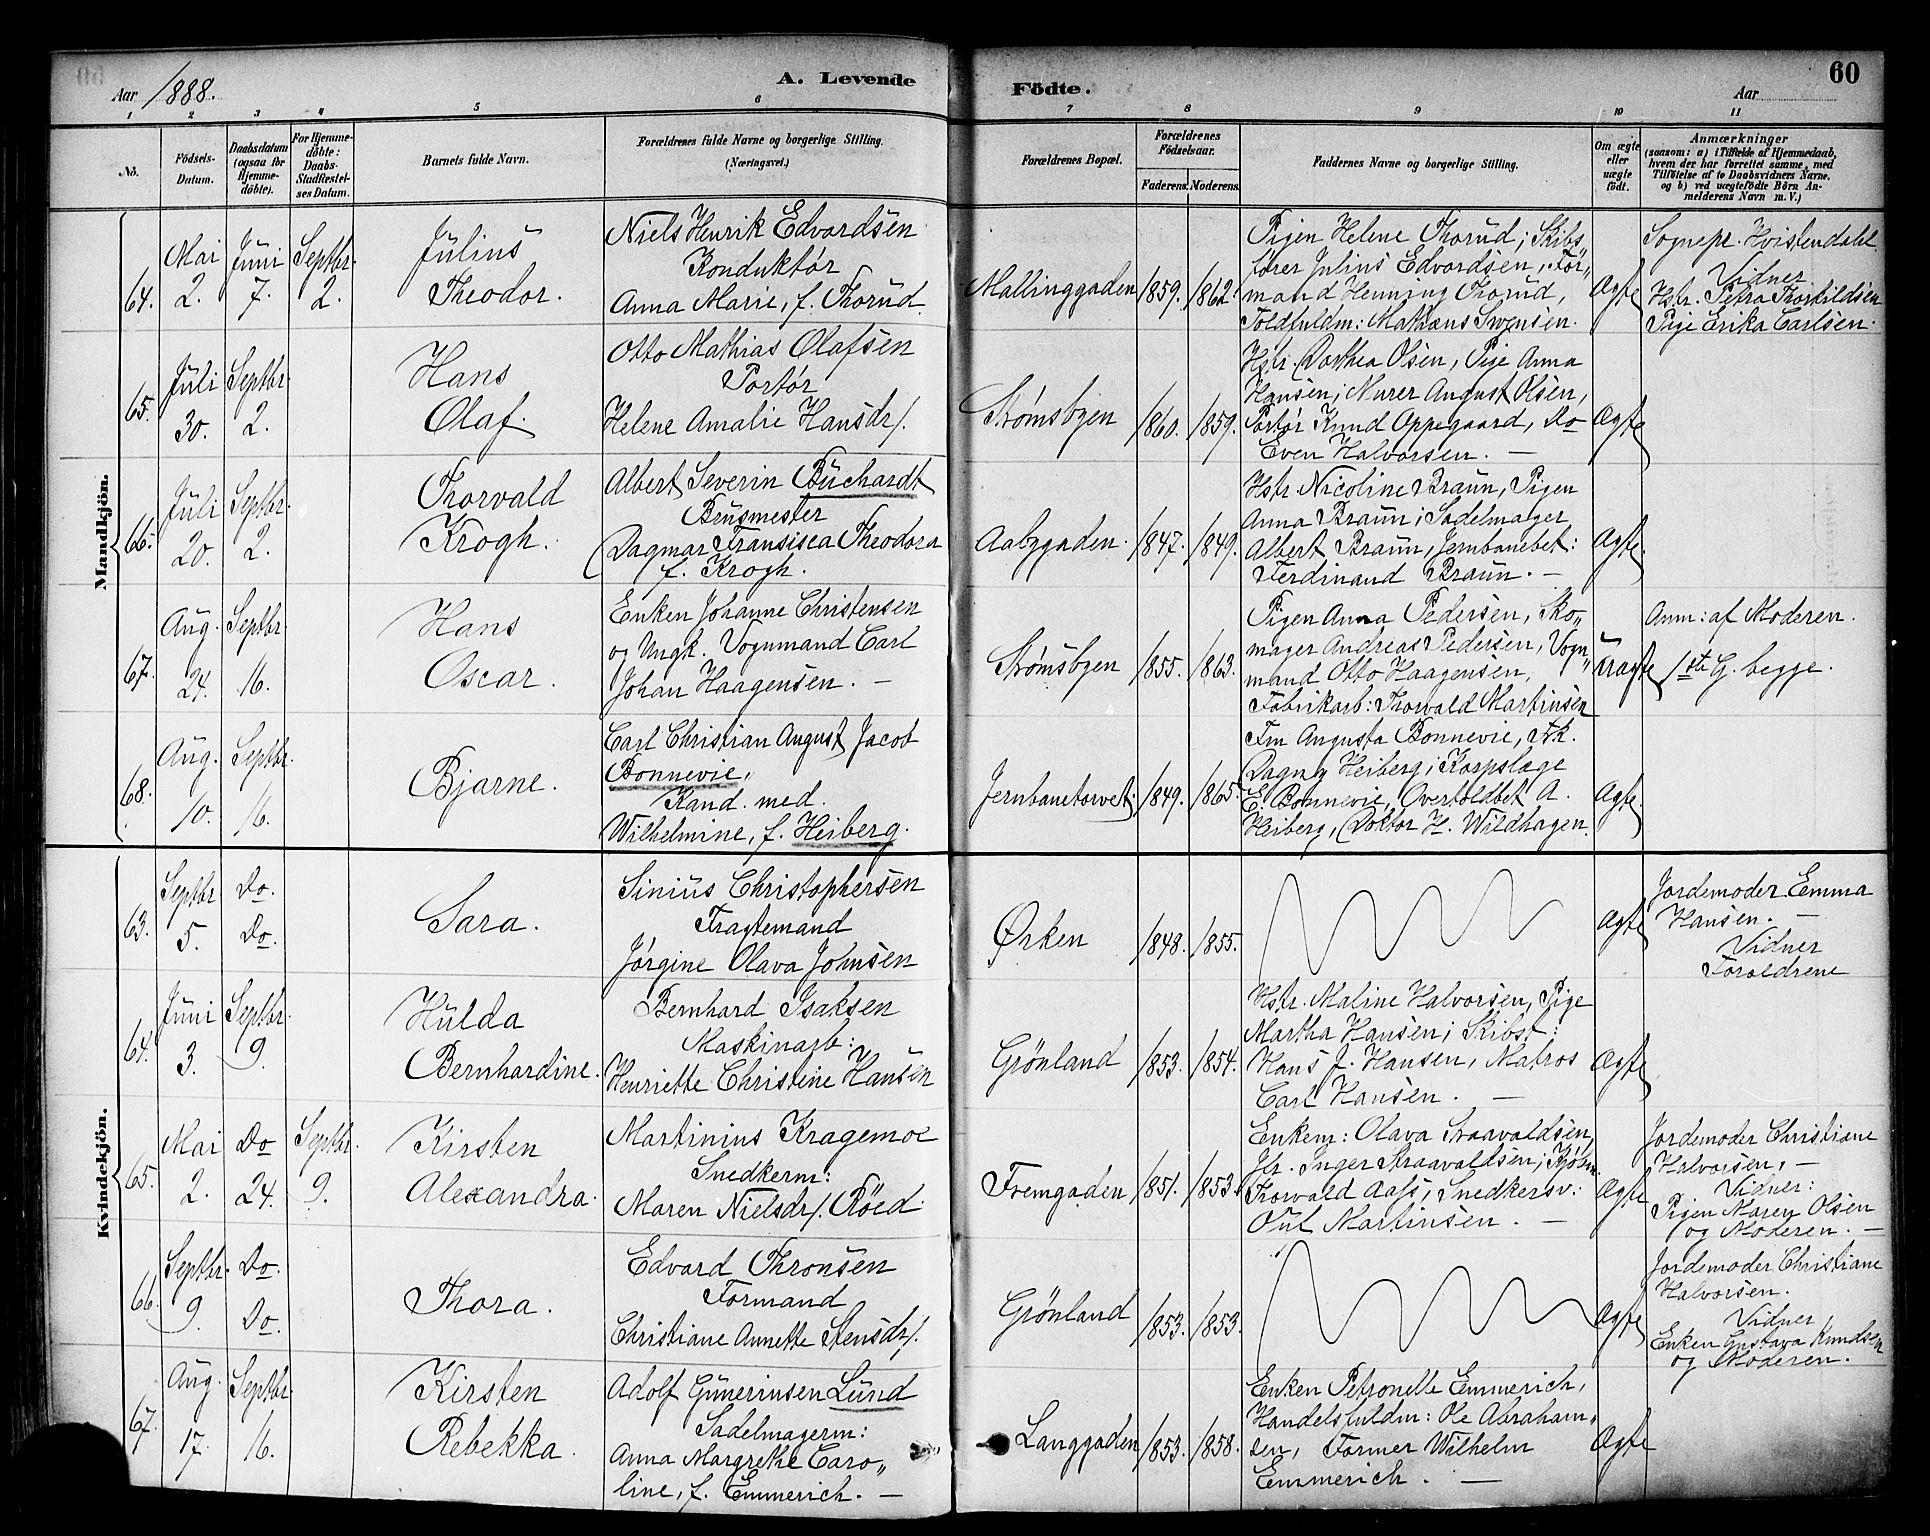 Aar 1888.
A. Levende
Födte.
60
Aar
1 2 3 4 5 6 7 8 9 10 11
No.
Födsels-Datum.
Daabsdatum (ogsaa for Hjemme-döbte).
For Hjemme-döbte: Daabs-Stadfæstel-ses Datum.
Barnets fulde Navn.
Forældrenes fulde Navne og borgerlige Stilling. (Næringsvei.)
Forældrenes Bopæl.
Forældrenes Födselsaar.
Faderens. Moderens.
Faddernes Navne og borgerlige Stilling.
Om ægte eller uægte födt.
Anmærkninger
(saasom: a) i Tilfælde af Hjemmedaab, hvem der har forrettet samme, med Tilföielse af to Daabsvidners Navne, og b) ved uægtefödte Börn An-melderens Navn m. V.)
Mandkjön.
64. Mai 2. Juni 7. Septbr. 2.
Julius
Theodor.
Niels Henrik Edvardsen
Konduktør
Anna Marie, f. Thorud.
Mallinggaden 1859. 1862.
Pigen Helene Thorud; Skibs„
fører Julius Edvardsen, For„
mand Henning Thorud,
Toldfuldm: Mathæus Svensen.
Ægte
Sognepr. Hvistendahl
Vidner
Hstr. Petra Thorkildsen
Pige Erika Carlsen.
65. Juli 30. Septbr. 2.
Hans
Olaf.
Otto Mathias Olafsen
Portør
Helene Amalie Hansdr/.
Strømsbyen 1860. 1859.
Hstr. Dorthea Olsen, Pige Anna
Hansen; Murer August Olsen,
Portør Knud Oppegaard, Do
Even Halvorsen. —
Ægte
66. Juli 20. Septbr. 2.
Thorvald
Krogh.
Albert Severin Buchardt
Brusmester
Dagmar Fransisca Theodora
f. Krogh.
Aabygaden. 1847. 1849.
Hstr Nicoline Braun, Pigen
Anna Braun; Sadelmager
Albert Braun, Jernbanebet:
Ferdinand Braun. —
Ægte.
67. Aug. 24. Septbr. 16.
Hans
Oscar.
Enken Johanne Christensen
og Ungk. Vognmand Carl
Johan Haagensen. —
Strømsbyen 1855. 1863.
Pigen Anna Pedersen, Sko„
mager Andreas Pedersen, Vogn„
mand Otto Haagensen,
Fabrikarb: Thorvald Martinsen
Uægte
Anm: af Moderen.
1ste G. begge.
68. Aug. 10. Septbr. 16.
Bjarne.
Carl Christian August Jacob
Bonnevie,
Kand. med.
Wilhelmine, f. Heiberg.
Jernbanetorvet. 1849. 1865.
Fru Augusta Bonnevie, Frk.
Dagny Heiberg; Korpslæge
E. Bonnevie, Overtoldbet A.
Heiberg, Doktor H. Wildhagen.
Ægte.
Kvindekjön.
63. Septbr 5. Do. Do.
Sara.
Sinius Christophersen
Fragtemand
Jørgine Olava Johnsen
Ørken 1848. 1855.
Ægte
Jordemoder Emma
Hansen. —
Vidner
Forældrene
64. Juni 3. Septbr. 9.
Hulda
Bernhardine.
Bernhard Isaksen
Maskinarb:
Henriette Christine Hansen
Grønland 1853. 1854.
Hstr. Maline Halvorsen, Pige
Martha Hansen; Skibst:
Hans J. Hansen, Matros
Carl Hansen. —
Ægte
65. Mai 2. Do 24. Septbr. 9.
Kirsten
Alexandra.
Martinius Kragemoe
Snedkerm:
Maren Nielsdr/. Röed.
Fremgaden 1851. 1853.
Enkem: Olava Straavaldsen,
Jfr. Inger Straavaldsen; Kjøbm.
Thorvald Aass, Snedkersv:
Oul Martinsen. —
Ægte
Jordemoder Christiane
Halvorsen, —
Vidner:
Pigen Maren Olsen
og Moderen. —
66. Septbr. 9. Do. Do.
Thora.
Edvard Thronsen
Formand
Christiane Annette Stensdr/.
Grönland 1853. 1853.
Ægte
Jordemoder Christiane
Halvorsen.
Vidner
Enken Gustava Knudsen
og Moderen.
67. Aug. 17. Septbr. 16.
Kirsten
Rebekka.
Adolf Gunerinsen Lund
Sadelmagerm:
Anna Margrethe Caro„
line, f. Emmerich. —
Langgaden 1853. 1858.
Enken Petronelle Emmerich,
Handelsfuldm: Ole Abraham„
sen, Former Wilhelm
Emmerich. —
Ægte